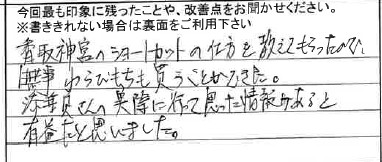 今回最も印象に残ったことや、改善点をお聞かせください。
※書ききれない場合は裏面をご利用下さい
香取神宮へショートカットの仕方を教えてもらったので、
無事わらびもちも買うことができた。
添乗員さんの実際に行って思った情報があると
有益だと思いました。